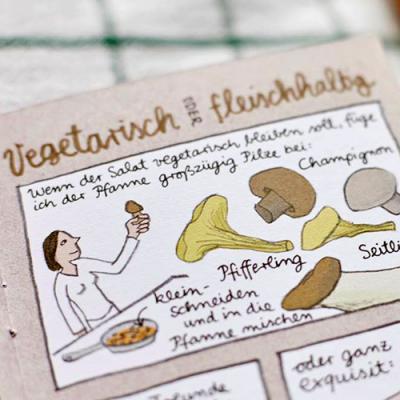 Vegetarisch ODER fleischhaltig
Wenn der Salat vegetarisch bleiben soll, füge
ich der Pfanne großzügig Pilze bei:
Champignon
Pfifferling
Seitli
klein-
schneiden
und in die
Pfanne mischen
Freunde
oder ganz
exquisit: